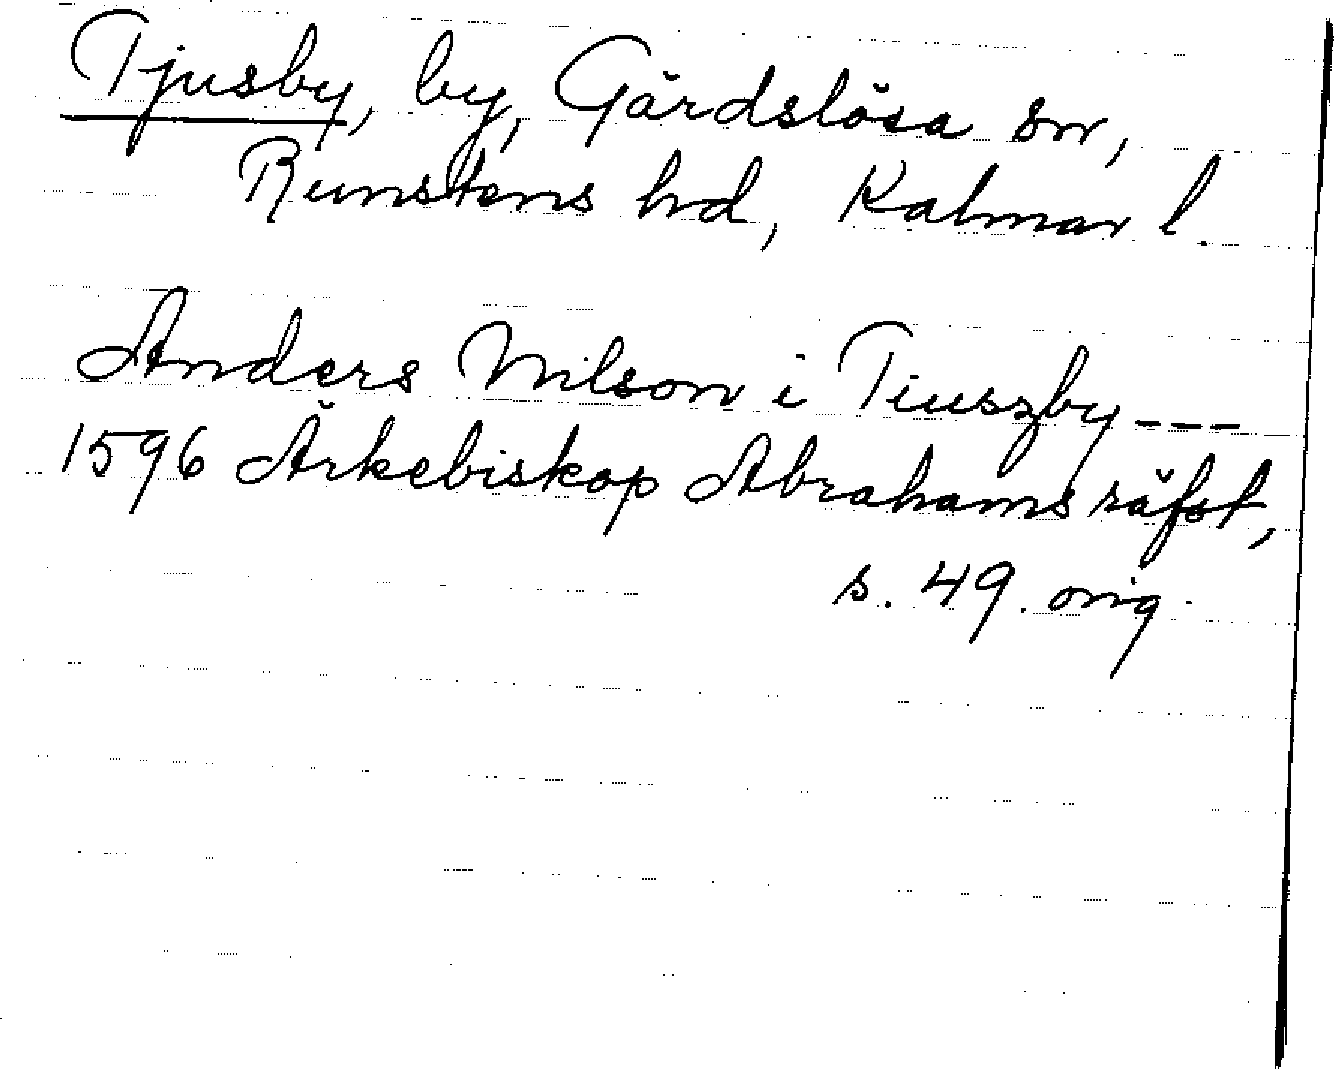 Tjusby, by, Gärdslösa sn,
Runstens hd, Kalmar l.
Anders Nilson i Tiuszby ---
1596 Ärkebiskop Abrahams räfst,
s. 49. orig.